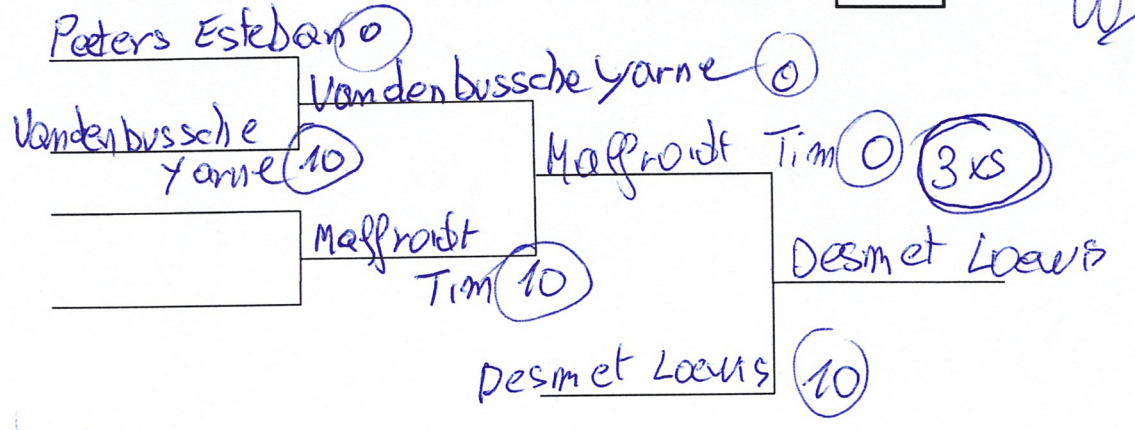 Peeters Esteban 0
Vandenbussche Yarne 0
Vandenbussche
Yarne 10
Maffroidt Tim 0 3xS
Maffroidt
Tim 10
Desmet Loewis
Desmet Loewis 10